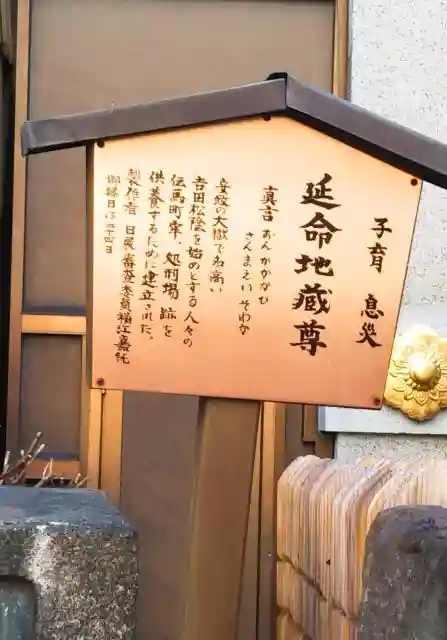 子育 息災
延命地蔵尊
真言 おん かかなむ
さんまえい そわか
安政の大獄で名高い
吉田松陰を始めとする人々の
伝馬町牢、処刑場跡を
供養するために建立された。
製作者 日展審査委員横江嘉純
御縁日は二十四日